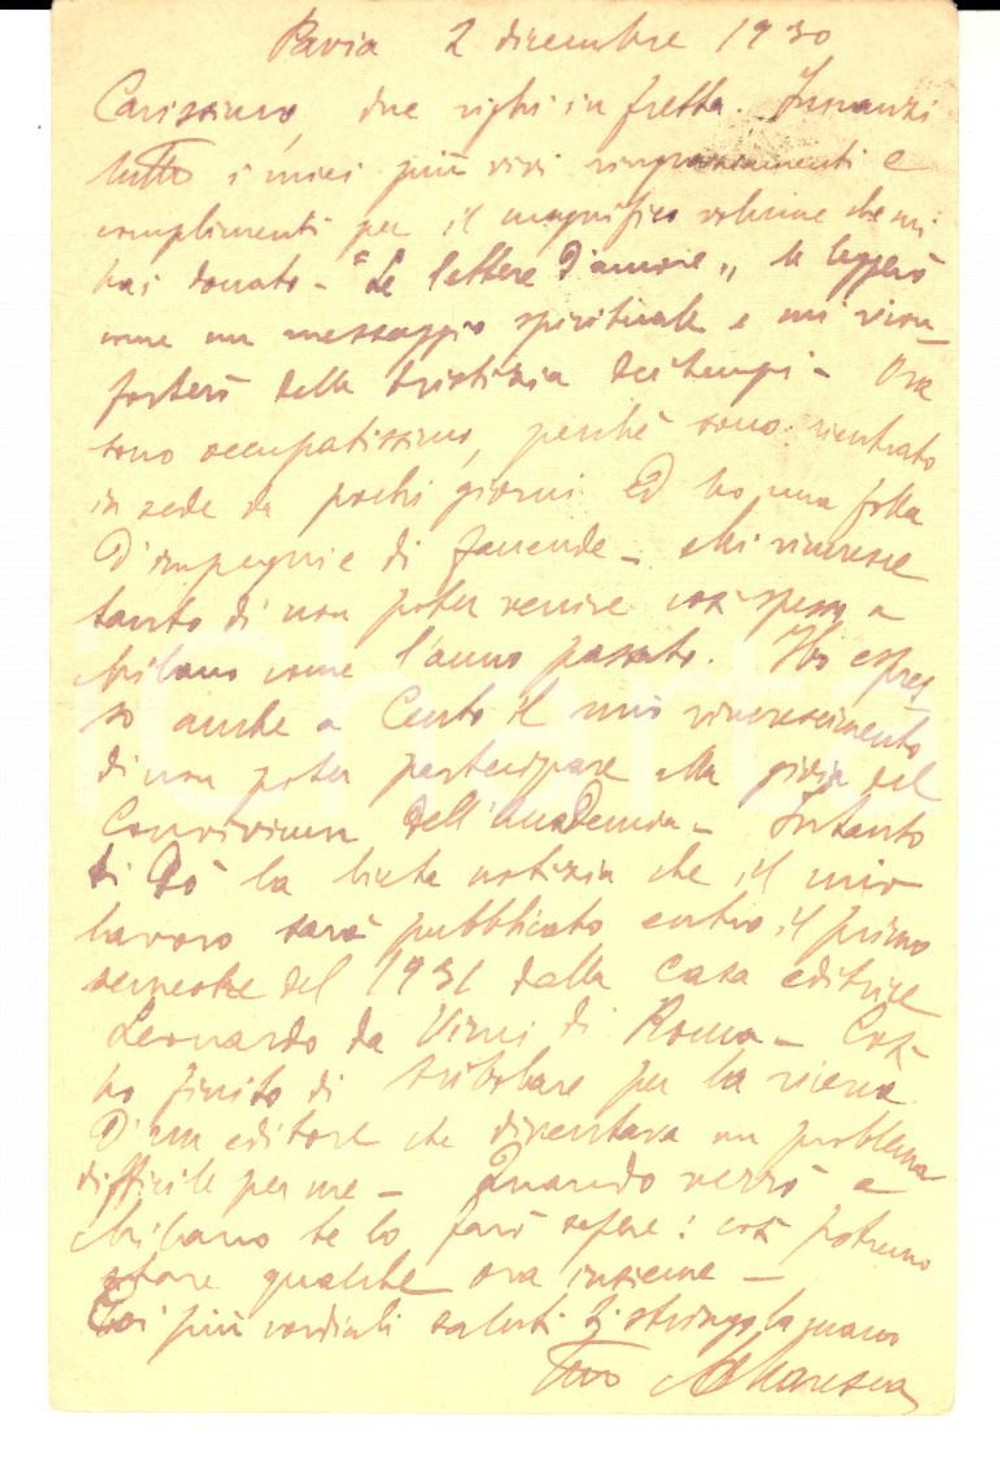 Pavia 2 dicembre 1930
Carissimo, due righi in fretta. Innanzi
tutto i miei più vivi ringraziamenti e
complimenti per il magnifico volume che mi
hai donato - "Le lettere d'amore„ le leggerò
come un messaggio spirituale e mi ricon-
forterò della tristizia dei tempi - Ora
sono occupatissimo, perché sono rientrato
in sede da pochi giorni ed ho una folla
d'impegni e di faccende - Mi rincresce
tanto di non poter venire così spesso a
Milano come l'anno passato. Ho espres-
so anche a Cento il mio rincrescimento
di non poter partecipare alla gioia del
Convivium dell'Accademia - Intanto
ti dò la lieta notizia che il mio
lavoro sarà pubblicato entro il primo
semestre del 1931 dalla Casa editrice
Leonardo da Vinci di Roma - Così
ho finito di tribolare per la ricerca
d'un editore che diventava un problema
difficile per me - Quando verrò a
Milano te lo farò sapere: così potremo
stare qualche ora insieme -
Coi più cordiali saluti ti stringo la mano
Tuo Maresca